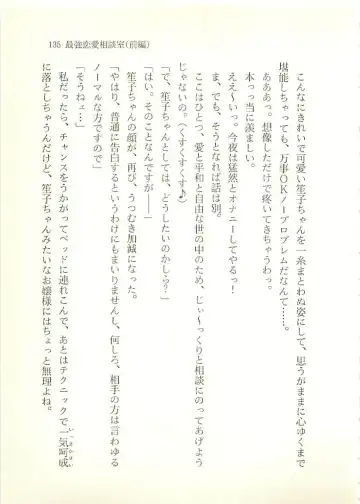 135 最強恋愛相談室（前編）
こんなにきれいで可愛い笙子ちゃんを一糸まとわぬ姿にして、思うがままに心ゆくまで
堪能しちゃっても、万事ＯＫノープロブレムだなんて……。
あああっ。想像しただけで疼いてきちゃうわっ。
本っっ当に羨ましい。
ええ〜い。今夜は猛然とオナニーしてやるっ！
あ、でも、そうとなれば話は別。
ここはひとつ、愛と平和と自由な世の中のため、じぃ〜っくりと相談にのってあげよう
じゃないの。（くすくすくす♪）
「で、笙子ちゃんとしては、どうしたいのかしら？」
「はい。そのことなんですが――」
笙子ちゃんの顔が、再び、うつむき加減になった。
「やはり、普通に告白するというわけにもまいりませんし、何しろ、相手の方は言わゆる
ノーマルな方ですので」
「そうねぇ」
私だったら、チャンスをうかがってベッドに連れこんで、あとはテクニックで一気呵成
に落としちゃうんだけど、笙子ちゃんみたいなお嬢様にはちょっと無理よね。